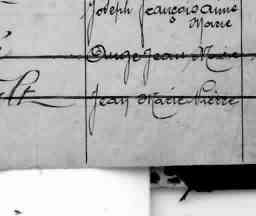 Joseph François anne
Marie
Ange Jean Marie
lt
Jean Marie Pierre